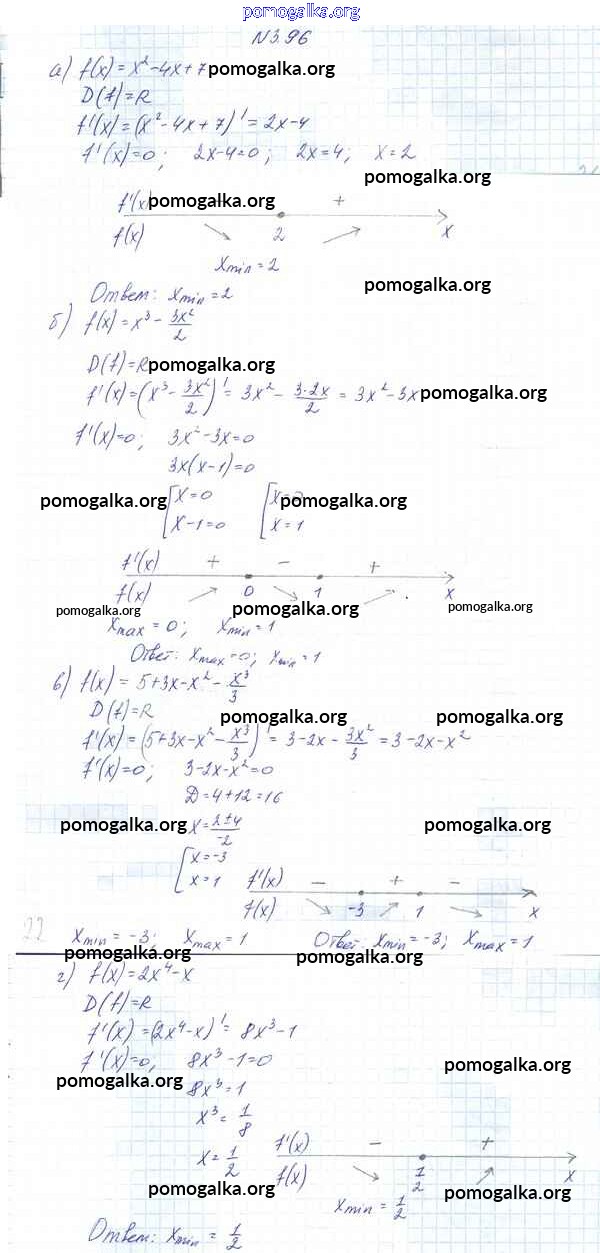 pomogalka.org
N3.96
а) f(x) = x² - 4x + 7 pomogalka.org
D(f) = R
f'(x) = (x² - 4x + 7)' = 2x - 4
f'(x) = 0; 2x - 4 = 0; 2x = 4; x = 2
pomogalka.org
f'(x) pomogalka.org - +
f(x) 2 x
x min = 2
pomogalka.org
Ответ: x min = 2
б) f(x) = x³ - 3x²/2
D(f) = R pomogalka.org
f'(x) = (x³ - 3x²/2)' = 3x² - 3·2x/2 = 3x² - 3x pomogalka.org
f'(x) = 0; 3x² - 3x = 0
3x(x - 1) = 0
pomogalka.org [x = 0 [x = 0 pomogalka.org
x - 1 = 0 x = 1
f'(x) + - +
f(x) 0 1 x
pomogalka.org pomogalka.org pomogalka.org
x max = 0; x min = 1
Ответ: x max = 0; x min = 1
в) f(x) = 5 + 3x - x² - x³/3
D(f) = R pomogalka.org pomogalka.org
f'(x) = (5 + 3x - x² - x³/3)' = 3 - 2x - 3x²/3 = 3 - 2x - x²
f'(x) = 0; 3 - 2x - x² = 0
D = 4 + 12 = 16
pomogalka.org x = 2±4/-2 pomogalka.org
[x = -3
x = 1
f'(x) - + -
f(x) -3 1 x
22
x min = -3; x max = 1 Ответ: x min = -3; x max = 1
pomogalka.org pomogalka.org
г) f(x) = 2x⁴ - x
D(f) = R
f'(x) = (2x⁴ - x)' = 8x³ - 1
f'(x) = 0, 8x³ - 1 = 0
pomogalka.org
pomogalka.org 8x³ = 1
x³ = 1/8
x = 1/2
f'(x) - +
f(x) 1/2 x
pomogalka.org pomogalka.org
x min = 1/2
Ответ: x min = 1/2